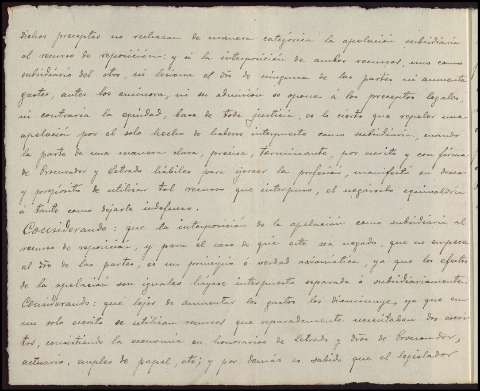 dichos preceptos no rechazan de manera categórica la apelación subsidiaria
al recurso de reposición: y si la interposición de ambos recursos, uno como
subsidiario del otro, ni lesiona el dro de ninguna de las partes ni aumenta
gastos, antes los aminora, ni su admision se opone á los preceptos legales
ni contraria la equidad, base de toda justicia, es lo cierto que repeler una
apelación por el solo hecho de haberse interpuesto como subsidiaria, cuando
la parte de una manera clara, precisa, terminante, por escrito y con firma
de Procurador y Letrado hábiles para ejercer la profesión, manifestó su deseo
y propósito de utilizar tal recurso que interpuso, el negárselo equivaldría
á tanto como dejarle indefenso.
Considerando: que la interposición de la apelación como subsidiaria al
recurso de reposición, y para el caso de que éste sea negado, que no empece
al dro de las partes, es un principio ó verdad axiomática, ya que los efectos
de la apelación son iguales háyase interpuesto separada ó subsidiariamente.
Considerando: que lejos de aumentar los gastos los disminuye, ya que en
un solo escrito se utilizan recursos que separadamente necesitaban dos escri-
tos, consistiendo la economía en honorarios de letrado y dros de Procurador,
actuario, empleo de papel, etc; y por demás es sabido que el legislador